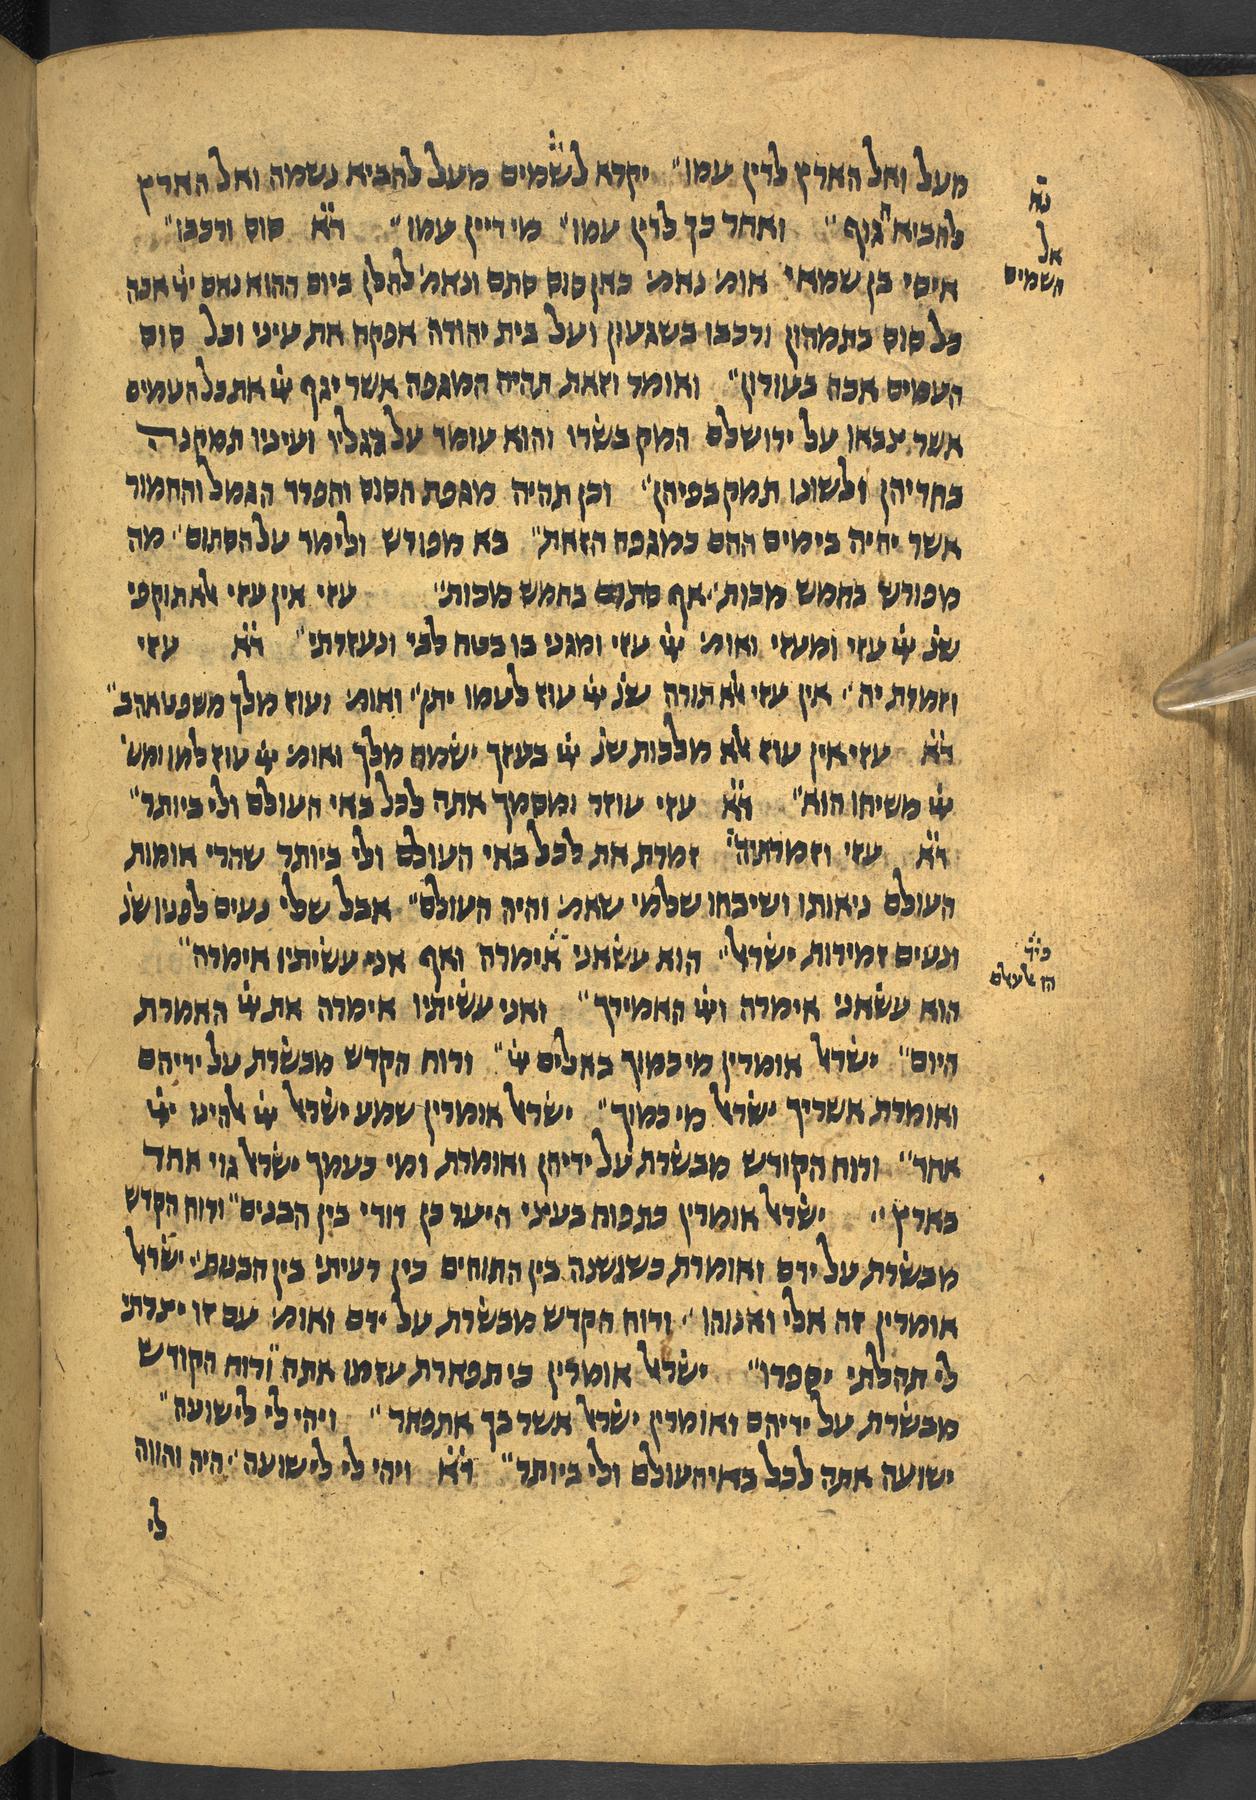 מעל ואל הארץ לדין עמו״ יקרא לשמים מעל להביא נשמה ואל הארץ
להביא הגוף״ ואחר כך לדין עמו״ מי דיין עמו״ ד׳א׳ סוס ורכבו״
איסי בן שמאי אומ׳ נאמ׳ כאן סוס סתם ונאמ׳ להלן ביום ההוא נאם ייי אכה
כל סוס בתמהון ורכבו בשגעון ועל בית יהודה אפקח את עיני וכל סוס
העמים אכה בעורון״ ואומר וזאת תהיה המגפה אשר יגף ייי את כל העמים
אשר צבאו על ירושלם המק בשרו והוא עומד על רגליו ועיניו תמקנה
בחריהן ולשונו תמק בפיהן״ וכן תהיה מגפת הסוס והפרד הגמל והחמור
אשר יהיה בימים ההם כמגפה הזאת״ בא מפורש ולימד על הסתום״ מה
מפורש בחמש מכות״ אף סתום בחמש מכות״ עזי אין עזי אלא תוקפי
שנ׳ ייי עזי ומעזי ואומ׳ ייי עזי ומגני בו בטח לבי ונעזרתי״ ד׳א׳ עזי
וזמרת יה״ אין עזי אלא תורה שנ׳ ייי עוז לעמו יתן״ ואומ׳ ועוז מלך משפט אהב״
ד׳א׳ עזי אין עוז אלא מלכות שנ׳ ייי בעזך ישמח מלך ואומ׳ ייי עוז למו ומע׳
ייי משיחו הוא״ ד׳א׳ עזי עוזר וסומך אתה לכל באי העולם ולי ביותר״
ד׳א׳ עזי וזמרת יה״ זמרת את לכל באי העולם ולי ביותר שהרי אומות
העולם ניאותו ושיבחו שלמי שאמ׳ והיה העולם״ אבל שלי נעים לפניו שנ׳
ונעים זמירות ישראל״ הוא עשאני אימרה ואף אני עשיתיו אימרה״
הוא עשאני אימרה וייי האמירך״ ואני עשיתיו אימרה את ייי האמרת
היום״ ישראל אומרין מי כמוך באלים ייי״ ורוח הקדש מבשרת על ידיהם
ואומרת אשריך ישראל מי כמוך״ ישראל אומרין שמע ישראל ייי אלהינו ייי
אחד״ ורוח הקודש מבשרת על ידיהן ואומרת ומי כעמך ישראל גוי אחד
בארץ״ ישראל אומרין כתפוח בעצי היער כן דודי בין הבנים״ ורוח הקדש
מבשרת על ידם ואומרת כשושנה בין החוחים כין רעיתי בין הבנות״ ישראל
אומרין זה אלי ואנוהו״ ורוח הקדש מבשרת על ידם ואומ׳ עם זו יצרתי
לי תהלתי יספרו״ ישראל אומרין כי תפארת עזמו אתה״ ורוח הקודש
מבשרת על ידיהם ואומרין ישראל אשר בך אתפאר״ ויהי לי לישועה״
ישועה אתה לכל באי העולם ולי ביותר״ ד׳א׳ ויהי לי לישועה״ היה והווה
לי
נ׳א׳
אל
השמים
הן לעולם